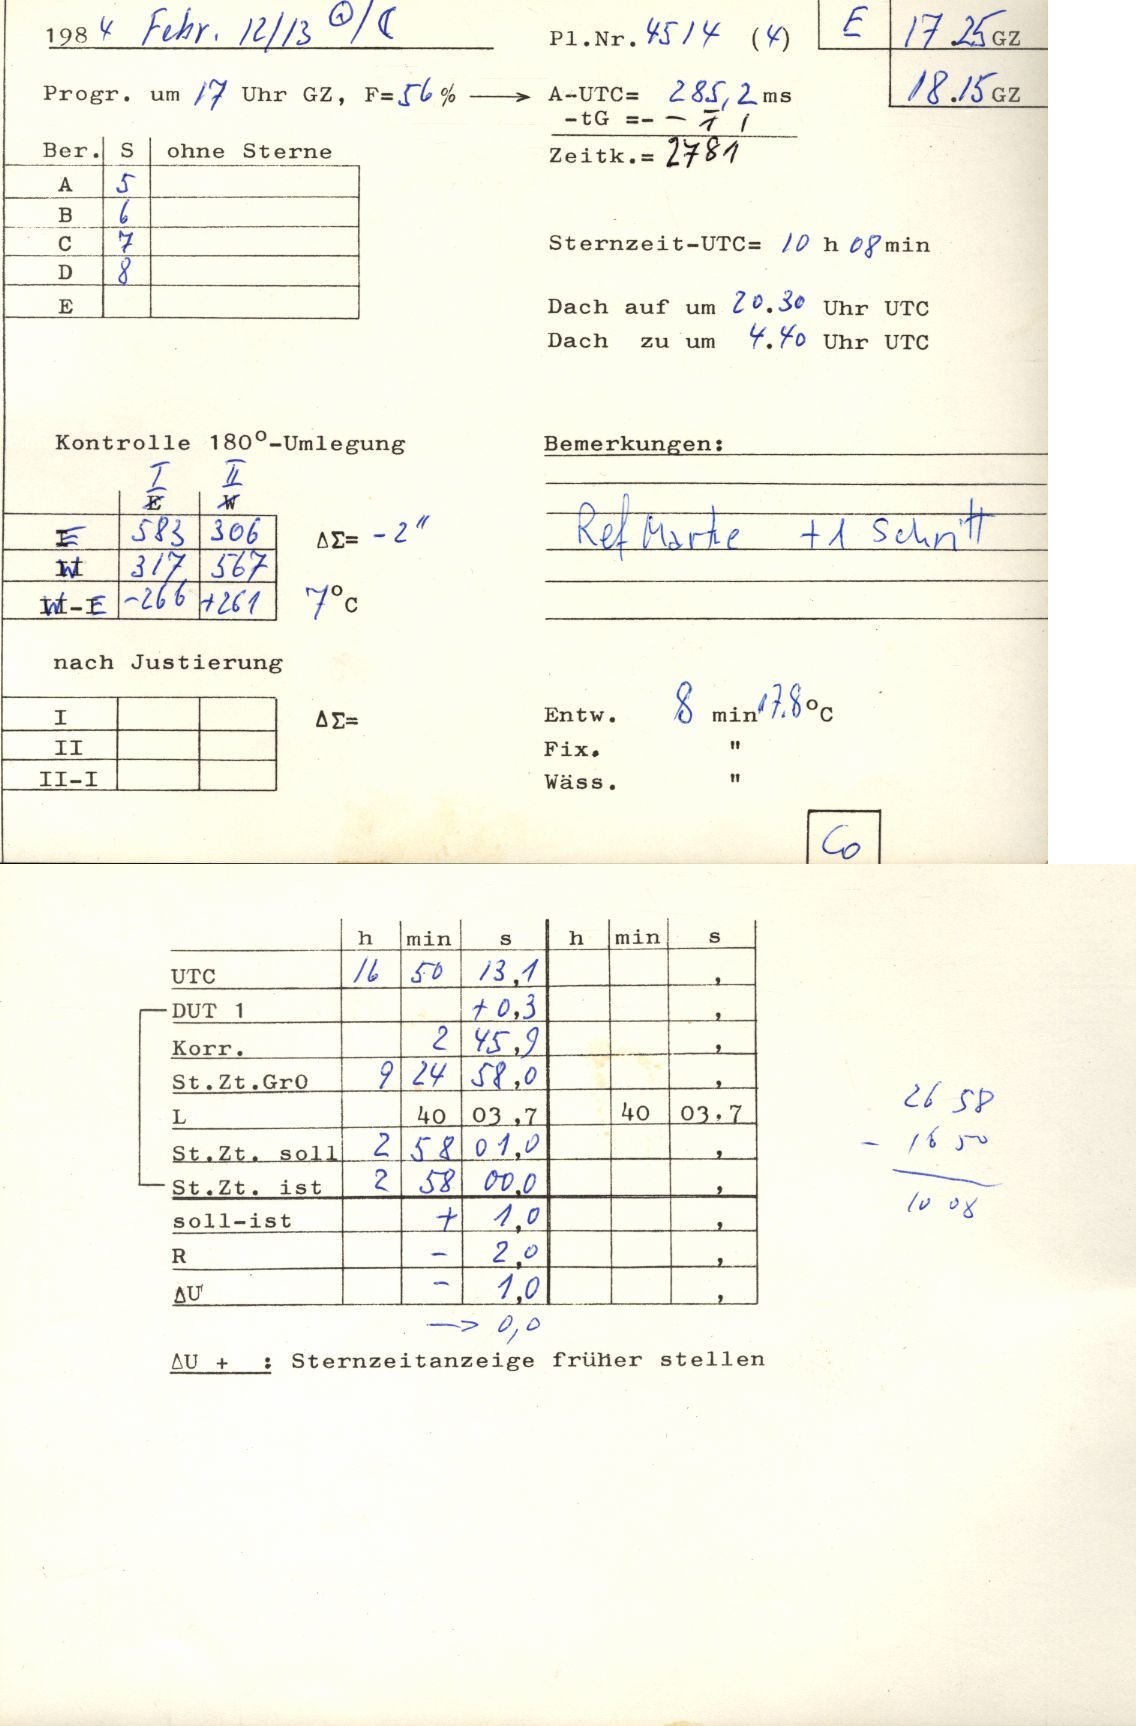 1984 Febr. 12/13 ☉/☾ Pl.Nr. 4514 (4) E 17.25 GZ
18.15 GZ
Progr. um 17 Uhr GZ, F=56% → A-UTC= 285,2 ms
-tG =-
Zeitk.= 2781
Ber. S ohne Sterne
A 5
B 6
C 7
D 8
E
Sternzeit-UTC= 10 h 08 min
Dach auf um 20.30 Uhr UTC
Dach zu um 4.40 Uhr UTC
Kontrolle 180°-Umlegung
I II
E W
E 583 306 ΔΣ= -2"
W 317 567
W-E -266 +261 7°C
Bemerkungen:
Ref Marke +1 Schritt
nach Justierung
I ΔΣ=
II
II-I
Entw. 8 min 17.8°C
Fix. "
Wäss. "
Co
h min s h min s
UTC 16 50 13,1 ,
DUT 1 +0,3 ,
Korr. 2 45,9 ,
St.Zt.Gr0 9 24 58,0 ,
L 40 03,7 40 03,7
St.Zt. soll 2 58 01,0 ,
St.Zt. ist 2 58 00,0 ,
soll-ist + 1,0 ,
R - 2,0 ,
ΔU - 1,0 ,
→ 0,0
ΔU + : Sternzeitanzeige früher stellen
26 58
- 16 50
10 08